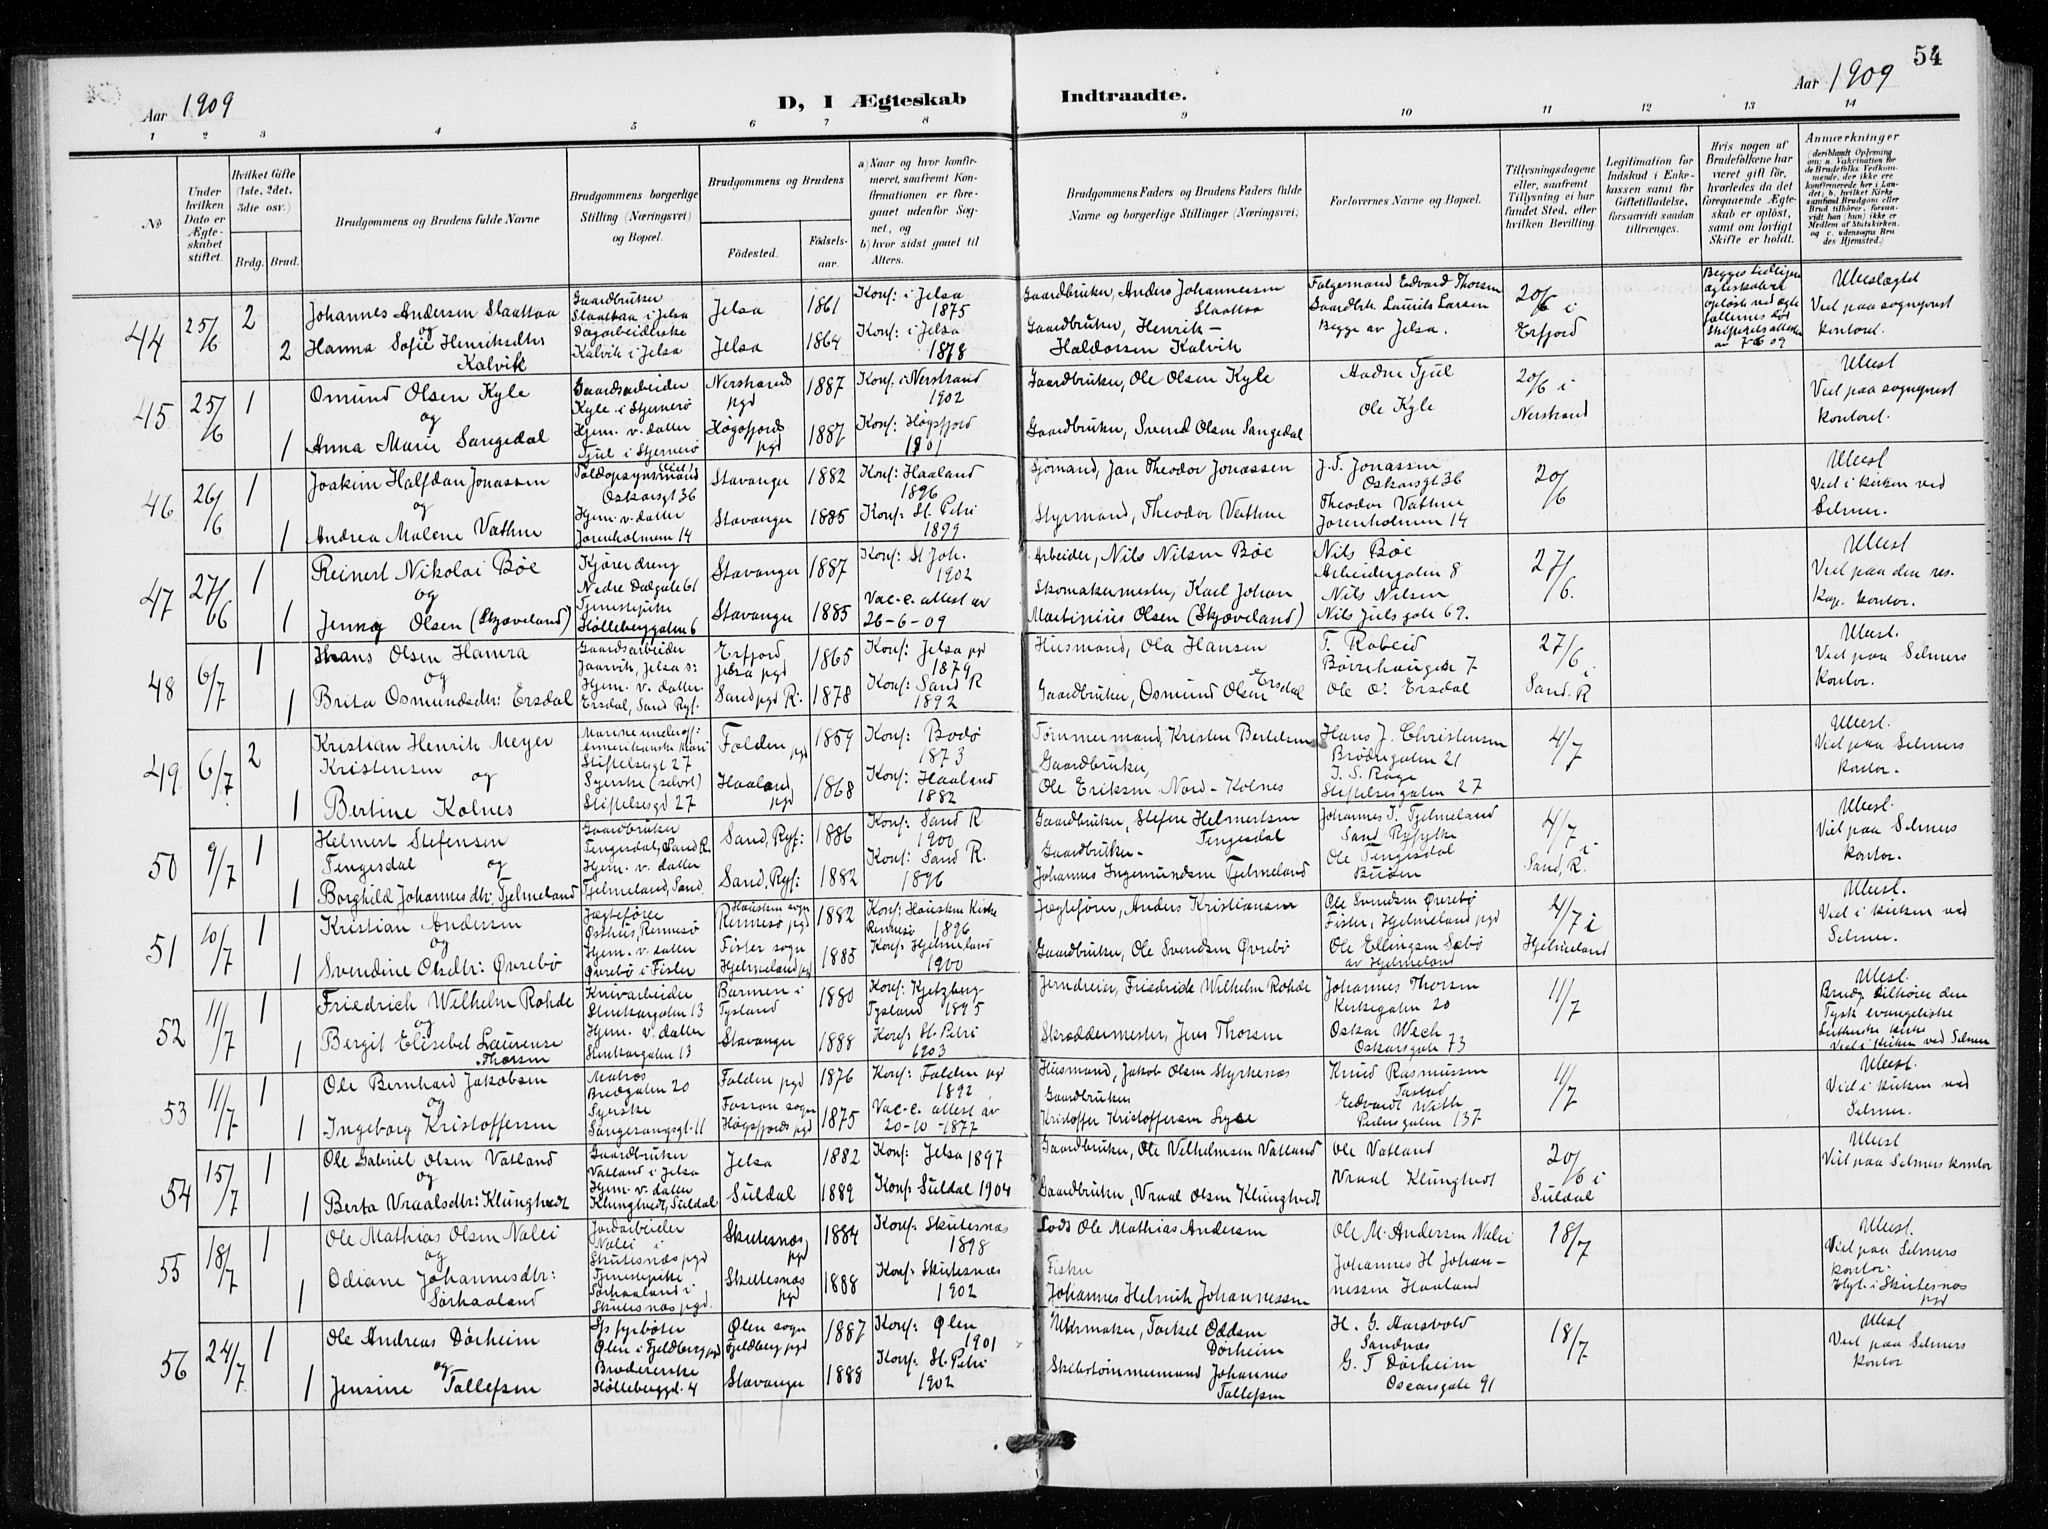 54
Aar 1909
D, I Ægteskab Indtraadte.
Aar 1909
1 2 3 4 5 6 7 8 9 10 11 12 13 14
No
Under hvilken Dato er Ægteskabet stiftet.
Hvilket Gifte (1ste, 2det, 3die osv.)
Brdg. Brud.
Brudgommens og Brudens fulde Navne
Brudgommens borgerlige Stilling (Næringsvei) og Bopæl.
Brudgommens og Brudens
Födested.
Födselsaar.
a) Naar og hvor konfirmeret, saafremt Konfirmationen er foregaaet udenfor Sognet, og
b) hvor sidst gaaet til Alters.
Brudgommens Faders og Brudens Faders fulde Navne og borgerlige Stillinger (Næringsvei)
Forlovernes Navne og Bopæl.
Tillysningsdagene eller, saafremt Tillysning ei har fundet Sted, efter hvilken Bevilling.
Legitimation for Indskud i Enkekassen samt for Giftetilladelse, forsaavidt saadan tiltrænges.
Hvis nogen af Brudefolkene har været gift før, hvorledes da det foregaaende Ægteskab er oplöst, samt om lovligt Skifte er holdt.
Anmærkninger
44 25/6 2 Johannes Andersen Slaattaa
og
2 Hanna Sofie Henriksdtr Kalvik
Gaardbruker Slaattaa i Jelsa
Dagarbeiderske Kalvik i Jelsa
Jelsa 1861 Konf: i Jelsa 1875
Jelsa 1864 Konf: i Jelsa 1878
Gaardbruker, Anders Johannessen Slaattaa
Gaardbruker, Henrik Haldorsen Kalvik
Følgemand Edvard Thorsen
Gaardbr. Laurits Larsen
Begge av Jelsa.
20/6 i Erfjord
Ubeslægtet
Viet paa sogneprest kontoret.
45 25/6 1 Osmund Olsen Kyle
og
1 Anna Marie Sangedal
Gaardsarbeider Kyle i Stjernerö
Hjem. v. datter Tjul i Stjernerö
Nerstrands pgd 1887 Konf. i Nerstrand 1902
Høgsfjords pgd 1887 Konf: Høgsfjord 1901
Gaardbruker, Ole Olsen Kyle
Gaardbruker, Svend Olsen Sangedal
Aadne Tjul
Ole Kyle
20/6 i Nerstrand
Ubesl
Viet paa sogneprest kontoret.
46 26/6 1 Joakim Halfdan Jonassen
og
1 Andrea Malene Vathne
Oskarsgt 36
Hjem. v. datter Jorenholmen 14
Stavanger 1882 Konf: Haaland 1896
Stavanger 1885 Konf: St. Petri 1899
Sjømand, Jan Theodor Jonassen
Styrmand, Theodor Vathne
J. T. Jonassen Oskarsgt 36
Theodor Vathne Jorenholmen 14
20/6
Ubesl
Viet i kirken ved Selmer.
47 27/6 1 Reinert Nikolai Bøe
og
1 Jenny Olsen (Skjæveland)
Kjøredreng Nedre Dalgate 61
Tjenestepike Hølleberggaten 6
Stavanger 1887 Konf: St Joh. 1902
Stavanger 1885 Vac-c. attest av 26-6-09
Arbeider, Nils Nilsen Bøe
Skomakermester, Karl Johan Martinius Olsen (Skjæveland)
Nils Bøe Arbeidergaten 8
Nils Nilsen Nils Juelsgate 69.
27/6.
Ubesl
Viet paa den res. kap. kontor.
48 6/7 1 Hans Olsen Hamra
og
1 Brita Osmundsdtr: Ersdal
Gaardsarbeider Jaarvik, Jelsa s:
Hjem. v. datter Ersdal, Sand Ryf.
Erfjord Jelsa pgd 1865 Konf: Jelsa pgd 1879
Sand pgd R: 1878 Konf: Sand R 1892
Husmand, Ola Hansen
Gaardbruker, Osmund Olsen Ersdal
T. Rabeid Børehaugen 7
Ole O. Ersdal
27/6 i Sand. R
Ubesl.
Viet paa Selmers kontor.
49 6/7 2 Kristian Henrik Meyer Kristensen
og
1 Bertine Kolnes
Stiftelsesgt 27
Syerske (selvst) Stiftelsesgd 27
Folden pgd 1859 Konf: Bodö 1873
Haaland pgd 1868 Konf: Haaland 1882
Tømmermand, Kristen Bertelsen
Gaardbruker, Ole Eriksen Nord-Kolnes
Hans J. Christensen Brødregaten 21
T. S. Rage Stiftelsesgaten 27
4/7
Ubesl.
Viet paa Selmers kontor.
50 9/7 1 Helmert Stefensen Tengesdal
og
1 Borghild Johannesdtr. Tjelmeland
Gaardbruker Tengesdal, Sand R.
Hjem. v. datter Tjelmeland, Sand.
Sand, Ryf: 1886 Konf: Sand R 1900
Sand, Ryf: 1882 Konf: Sand R. 1896
Gaardbruker, Stefen Helmertsen Tengesdal
Gaardbruker- Johannes Ingemundsen Tjelmeland
Johannes I. Tjelmeland Sand Ryfylke
Ole Tengesdal Buöen
4/7 i Sand, R.
Ubesl.
Viet paa Selmers kontor.
51 10/7 1 Kristian Andersen
og
1 Svendine Olsdtr: Øvrebö
Jægtefører Østhus, Rennesö
Hjem. v. datter Øvrebö i Fister
Hausken sogn Rennesø pgd 1882 Konf: Hausken Kirke Rennesø 1896
Fister sogn Hjelmeland pgd 1885 Konf: Hjelmeland 1900
Jægtefører, Anders Kristiansen
Gaardbruker, Ole Svendsen Øvrebö
Ole Svendsen Øvrebö Fister, Hjelmeland pgd
Ole Ellingsen Sebö av Hjelmeland
4/7 i Hjelmeland
Ubesl.
Viet i kirken ved Selmer.
52 11/7 1 Friedrich Wilhelm Rohde
og
1 Bergit Elisebet Laurense Thorsen
Knivarbeider Stenkargaten 13
Hjem. v. datter Stenkargaten 13
Barmen i Tysland 1880 Konf: Tysland 1895
Stavanger 1888 Konf: St. Petri 1903
Jerndreier, Friedride Wilhelm Rohde
Skræddermester, Jens Thorsen
Johannes Thorsen Kirkegaten 20
Oskar Wech Oskarsgate 73
11/7
Ubesl.
Brudg. tilhörer den Tysk evangeliske Lutherske kirke
Viet i kirken ved Selmer
53 11/7 1 Ole Bernhard Jakobsen
og
1 Ingeborg Kristoffersen
Matros Bredgaten 20
Syerske Sangesangsgt. 11
Folden pgd 1876 Konf: Folden pgd 1892
Fossan sogn Høgsfjords pgd 1875 Vac-c. attest av 20-10-1877
Husmand, Jakob Olsen Styrkenæs
Gaardbruker Kristoffer Kristoffersen Lyse
Knud Rasmussen Tastad
Edvardt With Pedersgaten 137
11/7
Ubesl.
Viet i kirken ved Selmer.
54 15/7 1 Ole Gabriel Olsen Vatland
og
1 Berta Vraalsdtr: Klungtvedt
Gaardbruker Vatland i Jelsa
Hjem v. datter Klungtvedt, Suldal
Jelsa 1882 Konf: Jelsa 1897
Suldal 1889 Konf: Suldal 1904
Gaardbruker, Ole Vilhelmsen Vatland
Gaardbruker, Vraal Olsen Klungtvedt
Ole Vatland
Vraal Klungtvedt
20/6 i Suldal
Ubesl
Viet paa Selmers kontor
55 18/7 1 Ole Mathias Olsen Nalei
og
1 Odiane Johannesdtr: Sørhaaland
Jordarbeider Nalei i Skutesnæs pgd
Tjenestepike Sørhaaland i Skutesnæs pgd.
Skutesnæs pgd 1884 Konf: Skutesnæs 1898
Skutesnæs pgd 1888 Konf: Skutesnæs 1902
Lods Ole Mathias Andersen
Fisker Johannes Helmich Johannessen
Ole M. Andersen Nalei
Johannes H Johannessen Haaland
18/7
Ubesl.
Viet paa Selmers kontor.
Lyst i Skutesnæs pgd
56 24/7 1 Ole Andreas Dørheim
og
1 Jensine Tollefsen
fyrböter Ølen i Fjeldberg pgd
Brodererske Hølleberggd. 4
Ølen sogn Fjeldberg pgd 1887 Konf: Ølen 1901
Stavanger 1888 Konf: St. Petri 1902
Uhrmaker, Torkel Oddsen Dørheim
Skibstømmermand Johannes Tollefsen
H. G. Aarsvold Sandnæs
G. T Dørheim Oscarsgate 91
18/7
Ubesl
Viet paa Selmers kontor